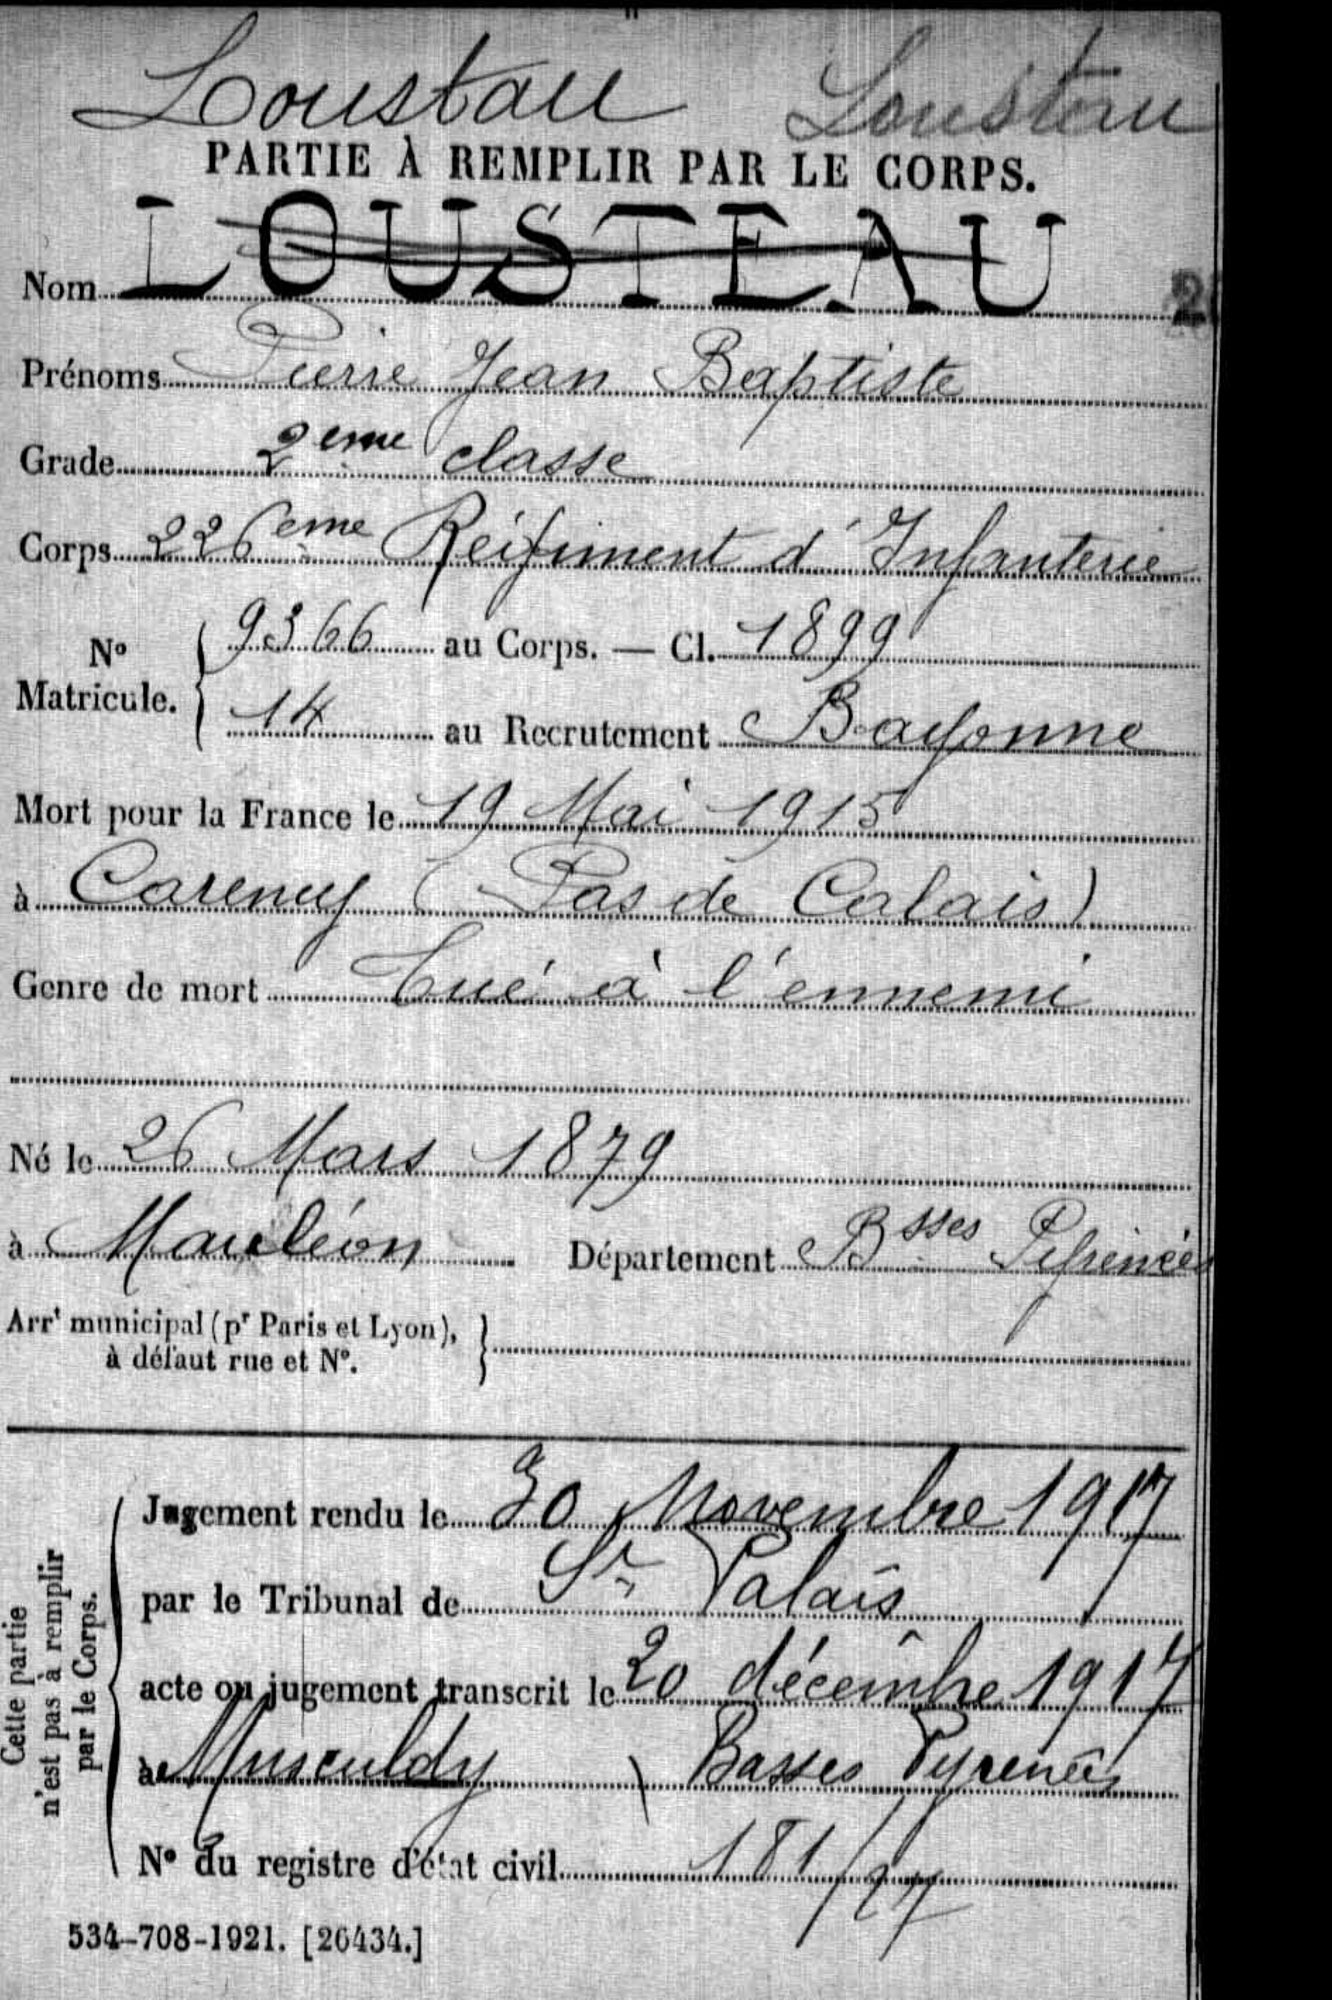 Loustau Loustau
PARTIE À REMPLIR PAR LE CORPS.
Nom LOUSTEAU
Prénoms Pierre Jean Baptiste
Grade 2eme classe
Corps 226eme Régiment d'Infanterie
N° Matricule. { 9366 au Corps. — Cl. 1899
14 au Recrutement Bayonne
Mort pour la France le 19 Mai 1915
à Carency (Pas de Calais)
Genre de mort Tué à l'ennemi
Né le 26 Mars 1879
à Mauléon Département Bsses Pyrénées
Arrt municipal (pr Paris et Lyon), à défaut rue et N°. }
Cette partie n'est pas à remplir par le Corps.
Jugement rendu le 30 Novembre 1917
par le Tribunal de St Palais
acte ou jugement transcrit le 20 décembre 1917
à Musculdy Basses Pyrenées
N° du registre d'état civil 181/27
534-708-1921. [26434.]